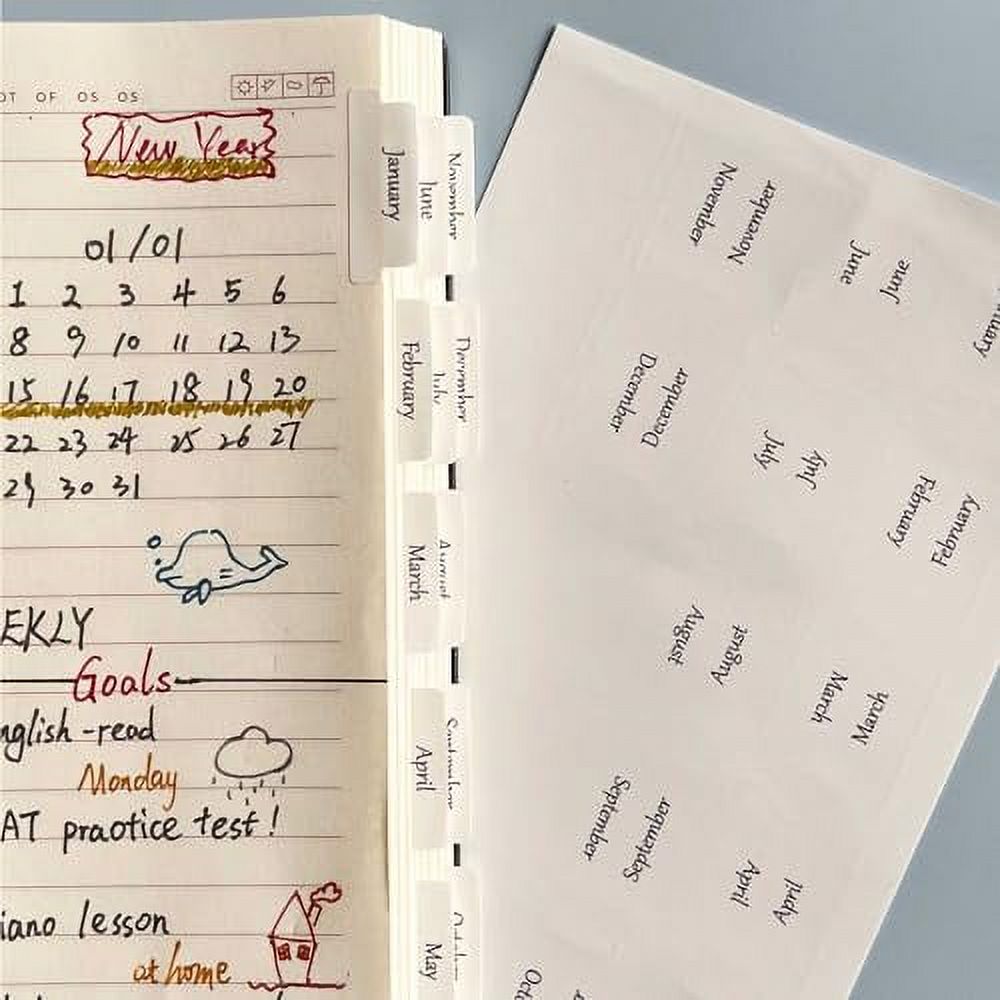 OT OF OS OS
New Year
01/01
1 2 3 4 5 6
8 9 10 11 12 13
15 16 17 18 19 20
22 23 24 25 26 27
29 30 31
EKLY
Goals
nglish-read
Monday
AT praotice test!
iano lesson
at home
January
June
November
February
July
December
March
August
April
September
May
November
November
June
June
uary
December
December
July
July
February
February
August
August
March
March
September
September
April
April
Octo